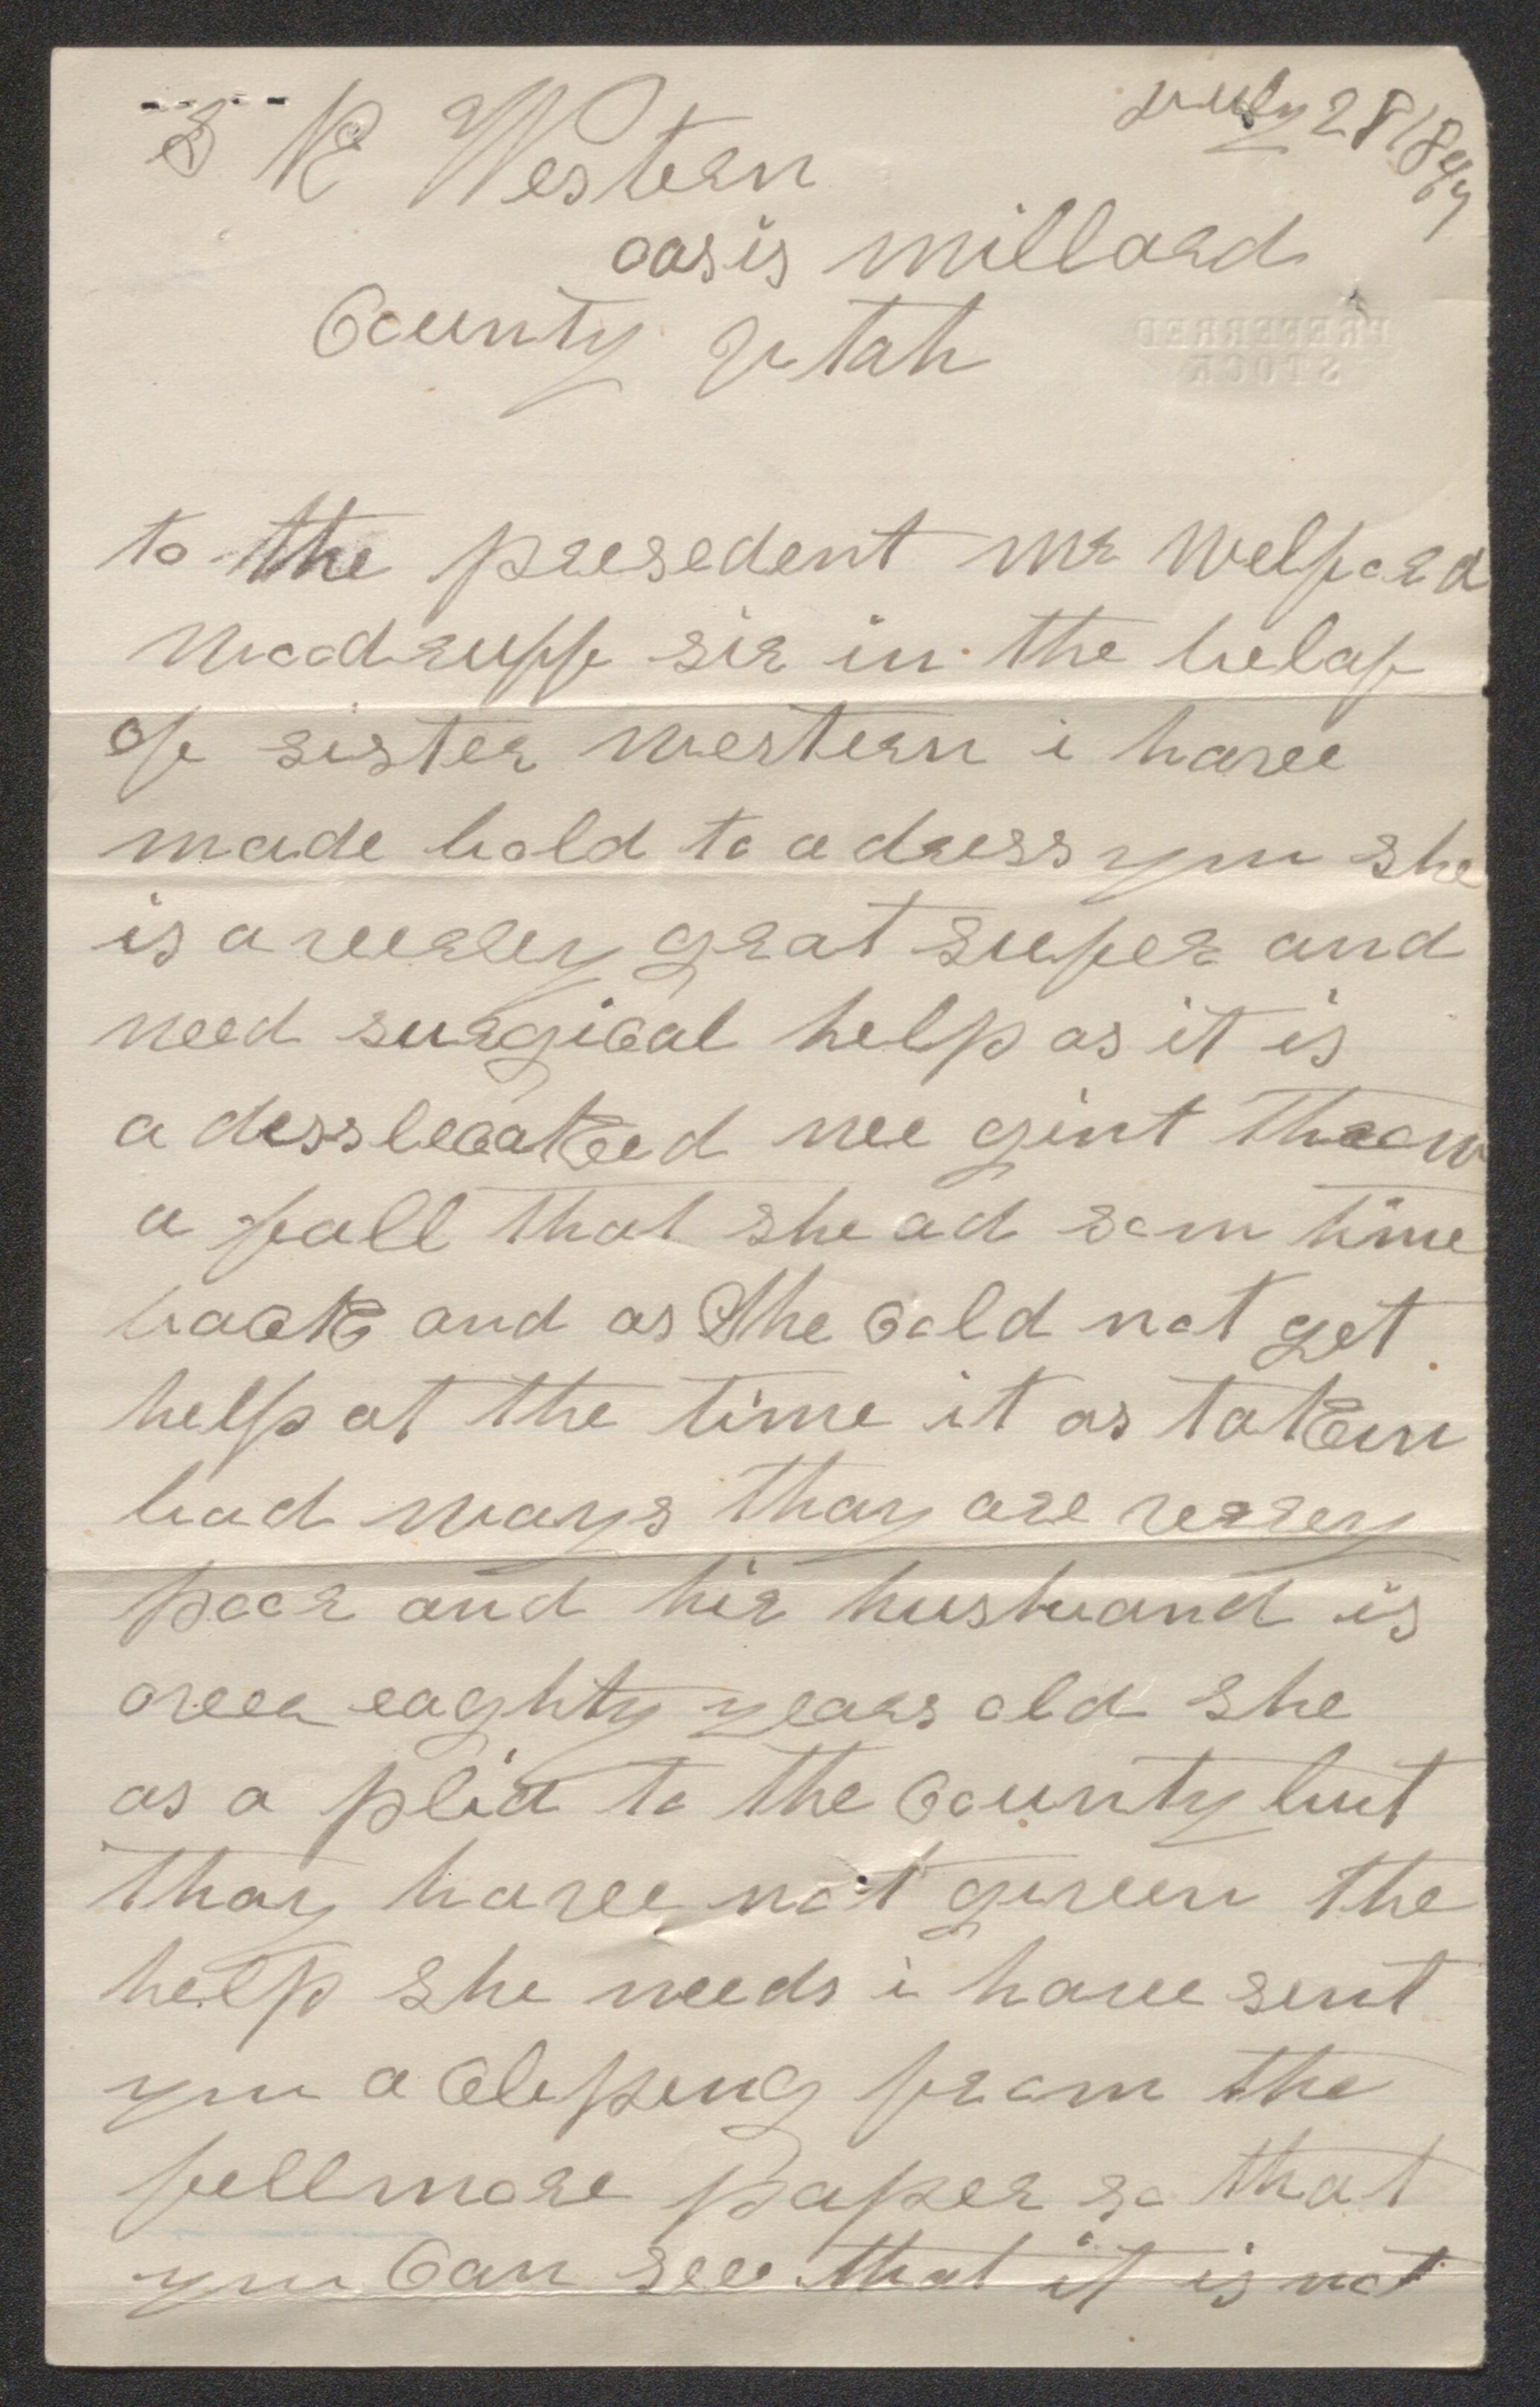 July 28 1897
S R Western
oasis millard
County Utah
PREFERRED
STOCK
to the presedent mr welford
woodruff sir in the belaf
of sister western i have
made bold to adress you she
is a verey great sufer and
need surgical help as it is
a desslocatked nee gint throw
a fall that she ad som time
back and as She cold not get
help at the time it as taken
bad ways thay are verey
poor and hir husband is
over eaghty years old she
as a plid to the County but
thay have not given the
help she needs i have sent
you a cleping from the
fellmore paper so that
you Can see that it is not